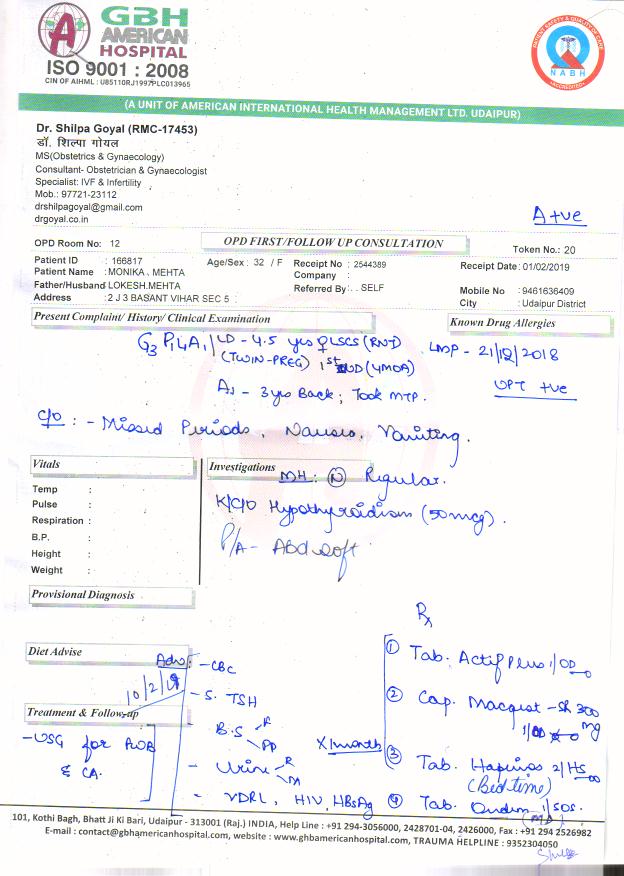 GBH
AMERICAN
HOSPITAL
ISO 9001 : 2008
CIN OF AIHML : U85110RJ1997PLC013965
PATIENT SAFETY & QUALITY OF CARE
NABH
ACCREDITED
(A UNIT OF AMERICAN INTERNATIONAL HEALTH MANAGEMENT LTD. UDAIPUR)
Dr. Shilpa Goyal (RMC-17453)
डॉ. शिल्पा गोयल
MS(Obstetrics & Gynaecology)
Consultant- Obstetrician & Gynaecologist
Specialist: IVF & Infertility
Mob.: 97721-23112
drshilpagoyal@gmail.com
drgoyal.co.in
A+ve
OPD Room No: 12
OPD FIRST/FOLLOW UP CONSULTATION
Token No.: 20
Patient ID : 166817 Age/Sex : 32 / F Receipt No : 2544389 Receipt Date: 01/02/2019
Patient Name : MONIKA . MEHTA Company :
Father/Husband LOKESH.MEHTA Referred By: . . SELF Mobile No : 9461636409
Address : 2 J 3 BASANT VIHAR SEC 5 City : Udaipur District
Present Complaint/ History/ Clinical Examination
Known Drug Allergies
G3 P1 A1 / LD - 4.5 yrs ♀ LSCS (RNT) LMP - 21/12/2018
(TWIN-PREG) 1st (4MOA)
A1 - 3 yrs Back ; Took MTP. UPT +ve
C/O : - Missed Periods, Nausea, Vomiting.
Vitals
Investigations
MH : N Regular.
Temp :
Pulse :
Respiration :
B.P. :
Height :
Weight :
K/C/O Hypothyroidism (50mcg).
P/A - Abd soft
Provisional Diagnosis
Rx
Diet Advise
Adv: - CBC
10/2/19
- S. TSH
B.S F
PP
- Urine R
- VDRL, HIV, HBsAg
Treatment & Follow-up
- USG for
& CA.
① Tab. Actif Plus 1/OD
② Cap. Macgest - SR 300 mg
1/OD
X 1 month
③ Tab. 2/HS
(Bed time)
④ Tab. 1/SOS.
101, Kothi Bagh, Bhatt Ji Ki Bari, Udaipur - 313001 (Raj.) INDIA, Help Line : +91 294-3056000, 2428701-04, 2426000, Fax : +91 294 2526982
E-mail : contact@gbhamericanhospital.com, website : www.gbhamericanhospital.com, TRAUMA HELPLINE : 9352304050